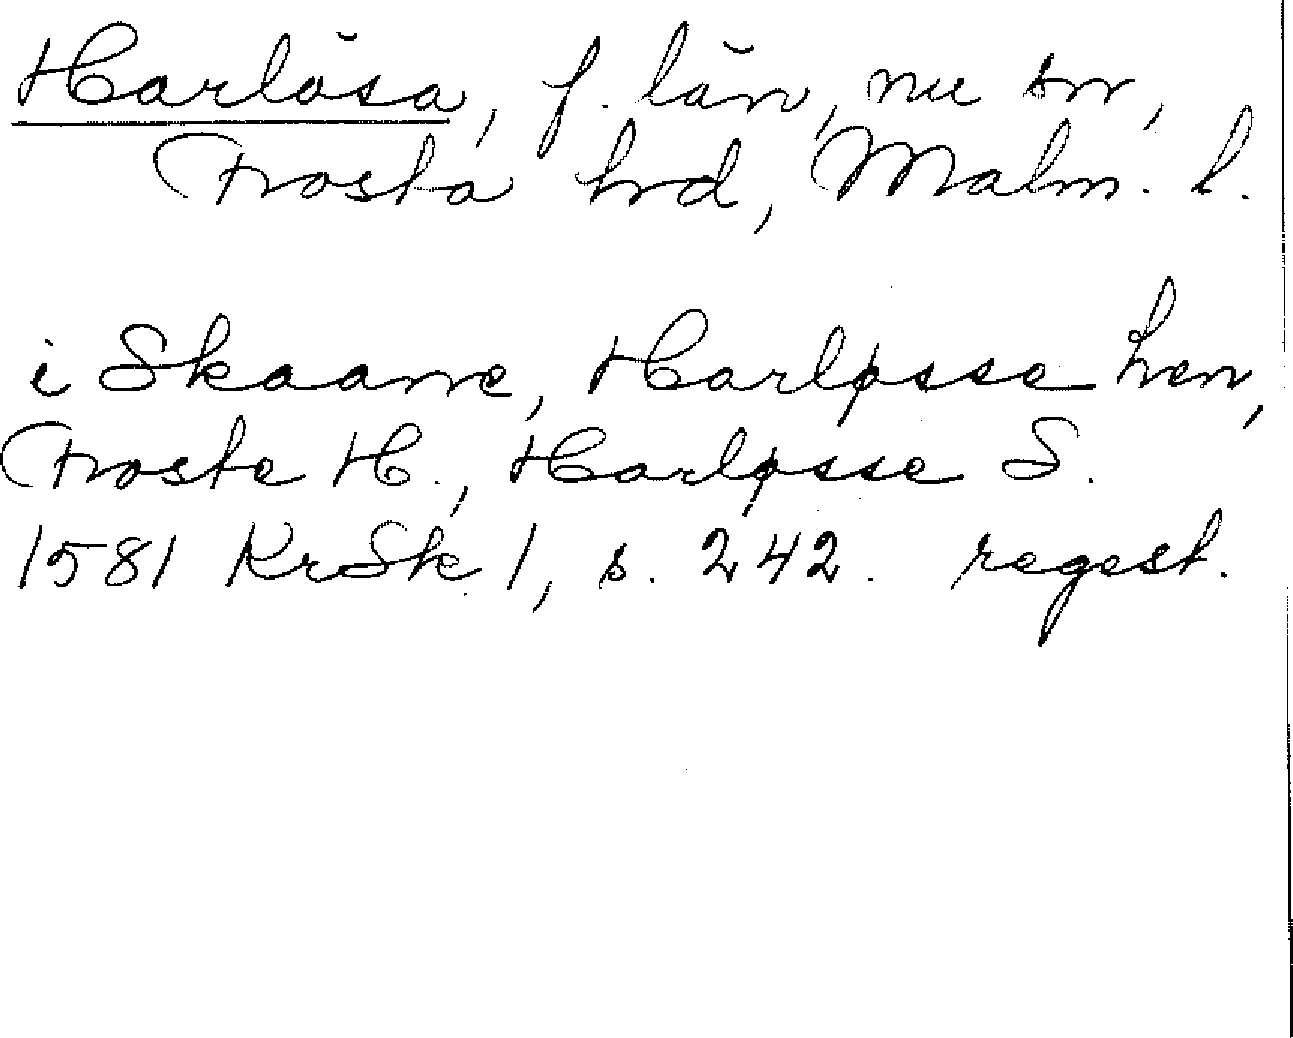 Harlösa, f. län, nu sn,
Frosta hrd, Malm. l.
i Skaane, Harløsse Len,
Froste H., Harløsse S.
1581 KrSk 1, s. 242. regest.